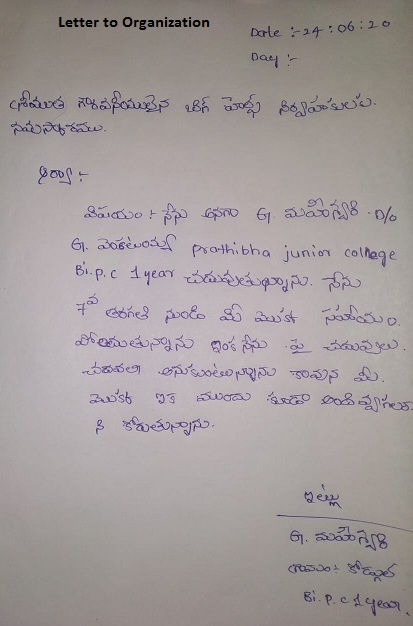 Letter to Organization
Date :- 24 : 06 : 20
Day :-
శ్రీయుత గౌరవనీయులైన బిగ్ హెల్ప్ నిర్వాహకులకు.
నమస్కారము.
ఆర్యా :-
విషయం :- నేను అనగా G. మహేశ్వరి. D/o
G. వెంకటయ్య prathibha junior college
Bi.p.c 1 year చదువుతున్నాను. నేను
7వ తరగతి నుండి మీ యొక్క సహాయం.
పొందుతున్నాను ఇంక నేను పై చదువులు.
చదవాలి అనుకుంటున్నాను కావున మీ.
యొక్క ఇక ముందు కూడా
ని కోరుతున్నాను.
ఇట్లు
G. మహేశ్వరి
గ్రామం :-
Bi.p.c 1 year.